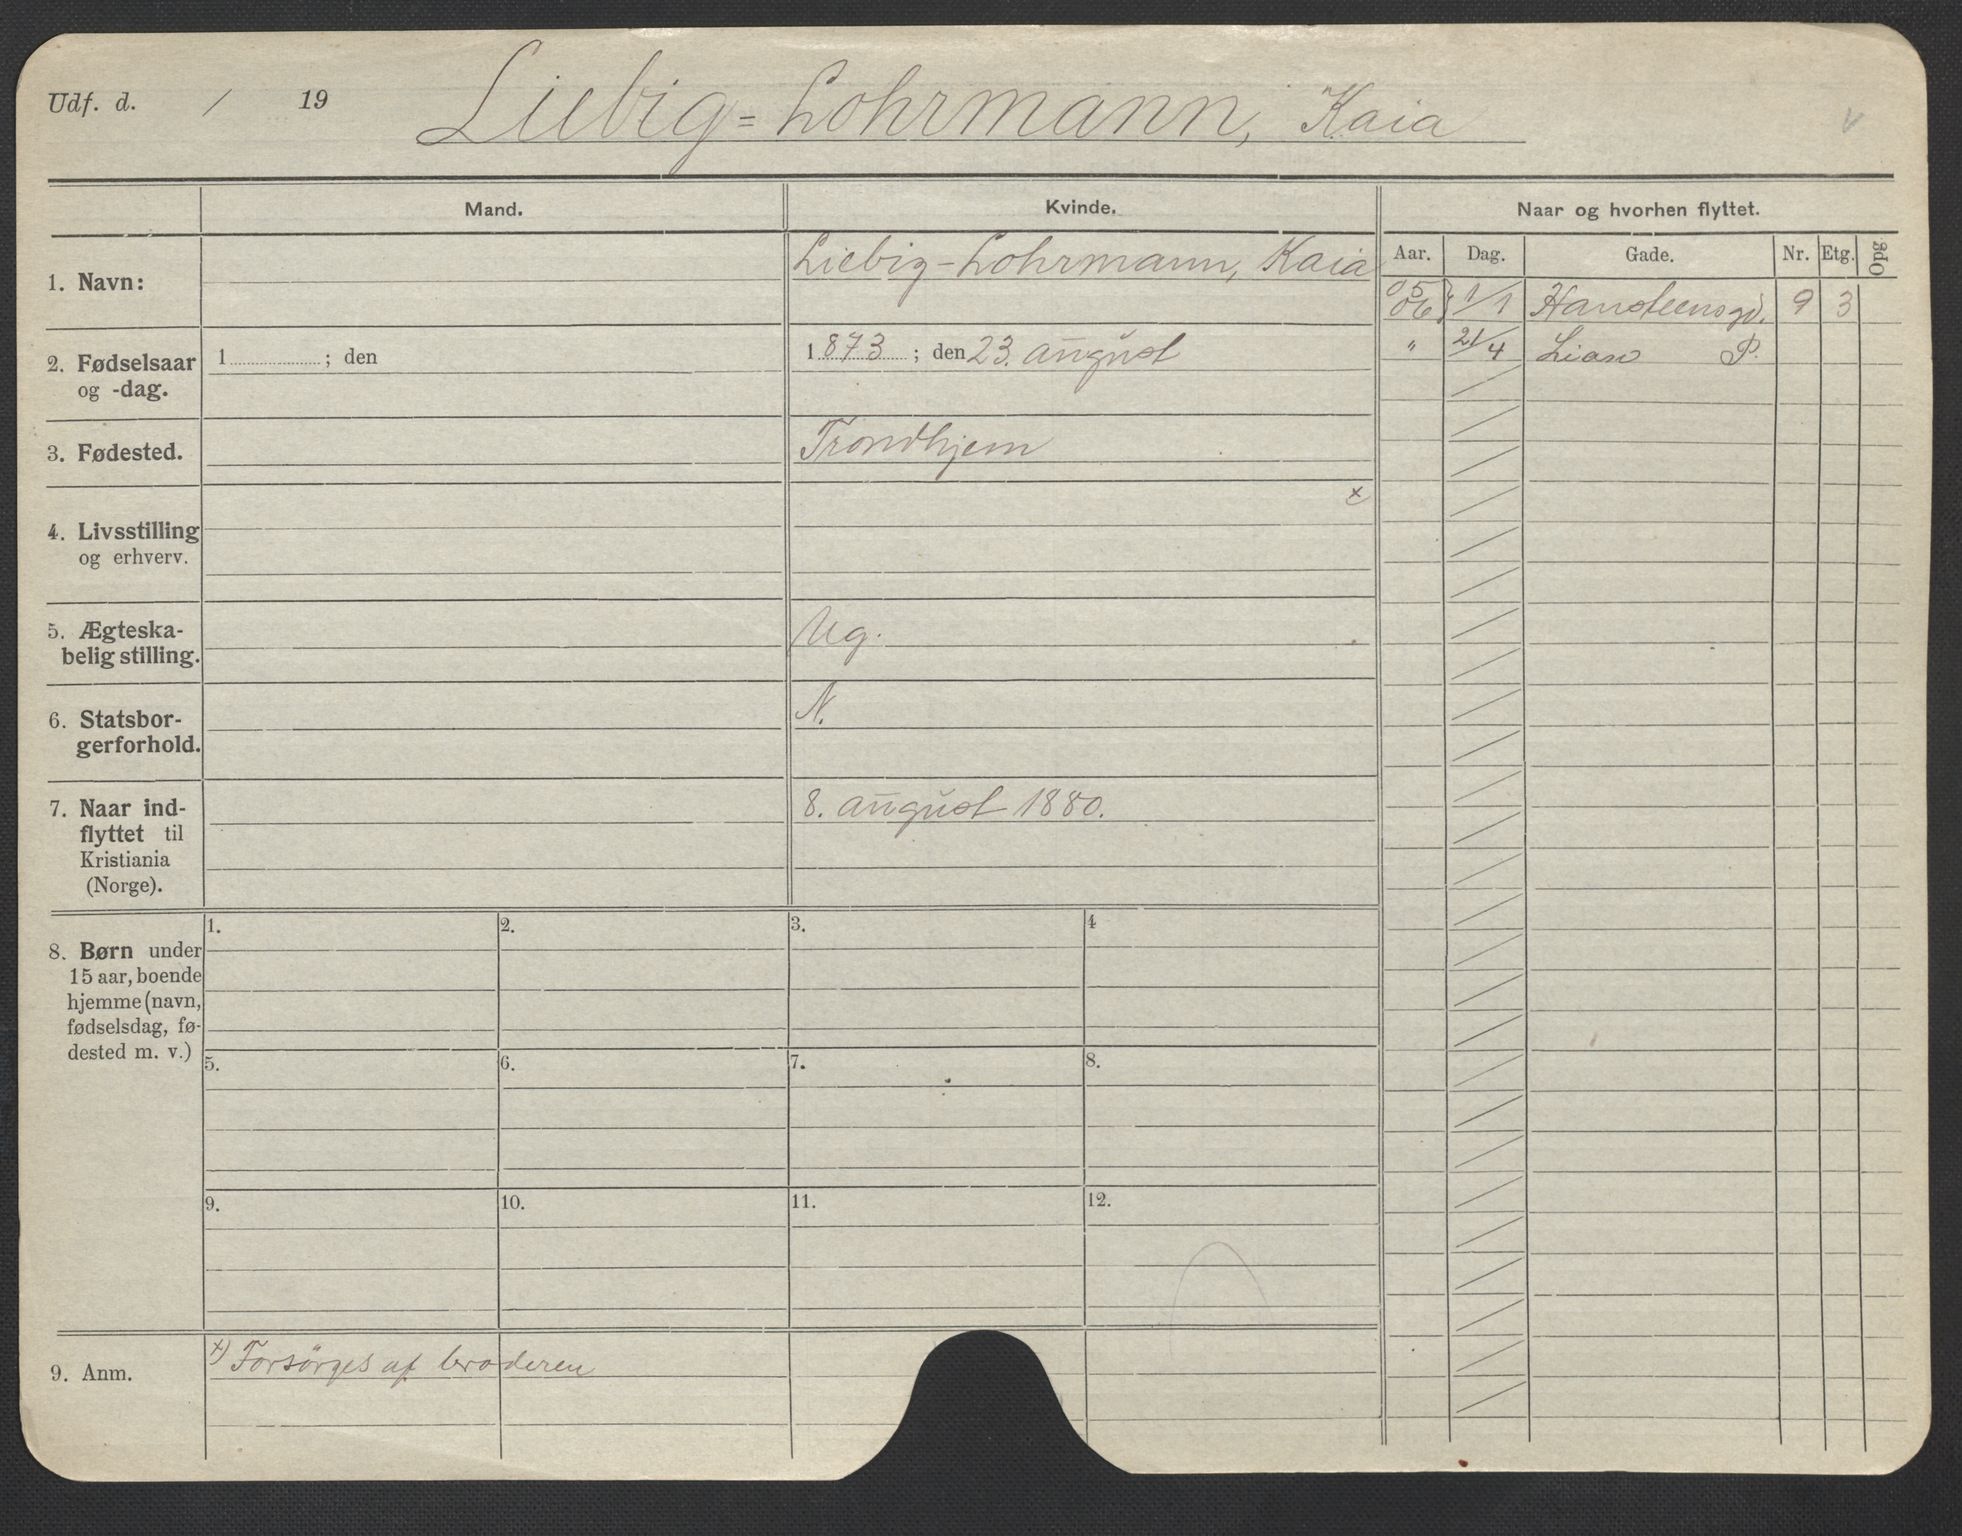 Udf. d. / 19
Liebig=Lohrmann, Kaia
Mand.
Kvinde.
Naar og hvorhen flyttet.
Aar. Dag. Gade. Nr. Etg. Opg
1. Navn:
Liebig-Lohrmann, Kaia
05
06 } 1/1 Hansteensgd. 9 3
" 21/4 Lian P.
2. Fødselsaar
og -dag.
1 ; den
1873 ; den 23. august
3. Fødested.
Trondhjem
4. Livsstilling
og erhverv.
x
5. Ægteska-
belig stilling.
Ug.
6. Statsbor-
gerforhold.
N.
7. Naar ind-
flyttet til
Kristiania
(Norge).
8. august 1880.
8. Børn under
15 aar, boende
hjemme (navn,
fødselsdag, fø-
dested m. v.)
1. 2. 3. 4
5. 6. 7. 8.
9. 10. 11. 12.
9. Anm.
x) Forsörges af broderen